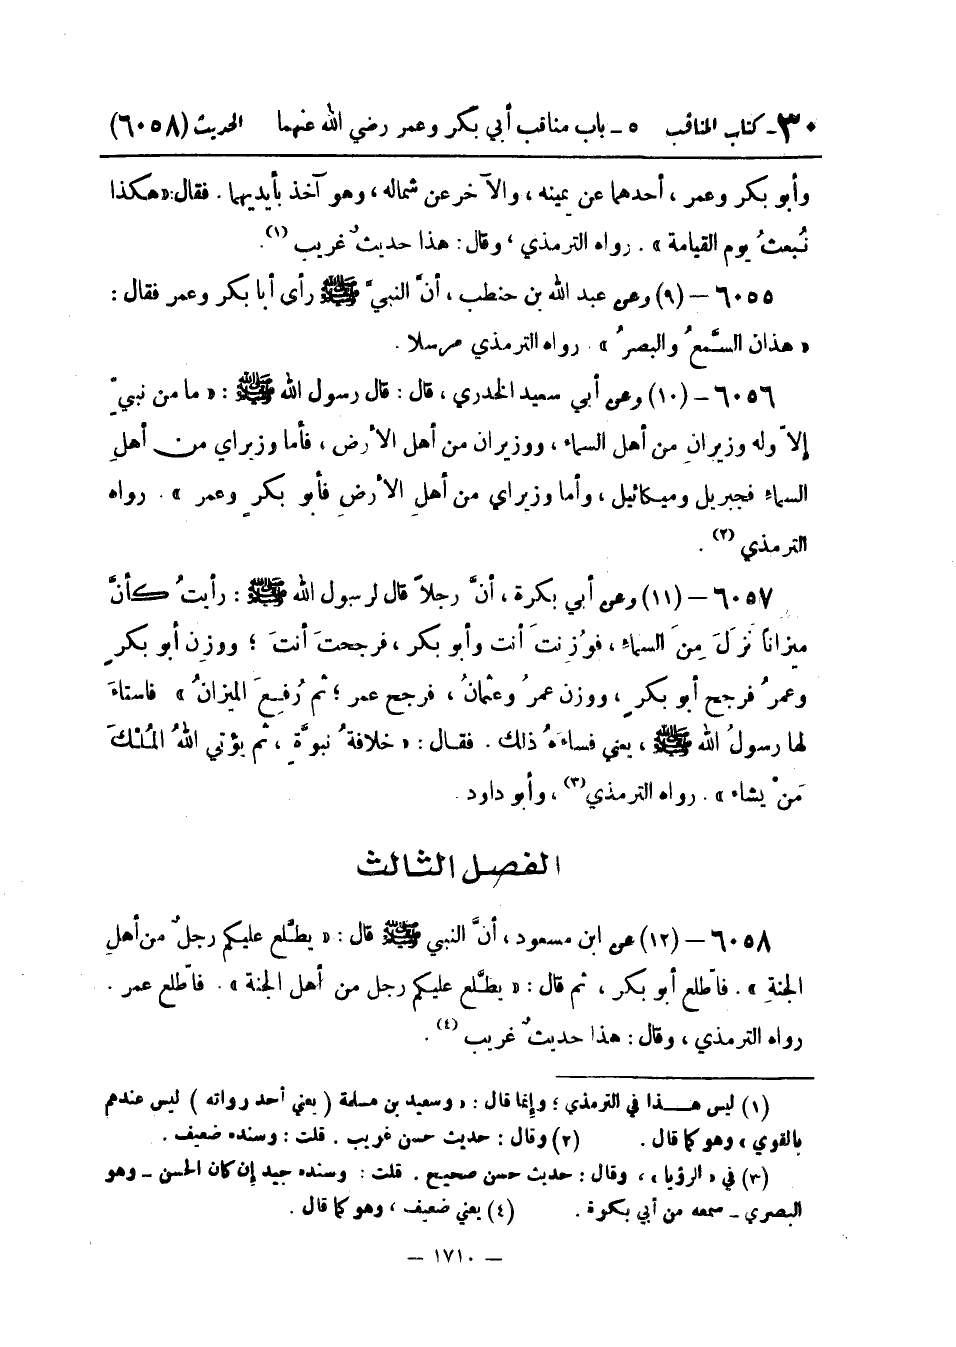 ٣٠ـ كتاب المناقب ٥ ـ باب مناقب أبي بكر وعمر رضي الله عنهما الحديث (٦٠٥٨)
وأبو بكر وعمر ، أحدهما عن يمينه ، والآخر عن شماله ، وهو آخذ بأيديهما . فقال: «هكذا
نُبعثُ يوم القيامة » . رواه الترمذي ، وقال : هذا حديثٌ غريب (١).
٦٠٥٥ – (٩) وعن عبد الله بن حنطب ، أنَّ النبيَّ ﷺ رأى أبا بكر وعمر فقال :
« هذان السَّمعُ والبصرُ » . رواه الترمذي مرسلا .
٦٠٥٦ – (١٠) وعن أبي سعيد الخدري ، قال : قال رسول الله ﷺ : « ما من نبيٍّ
إلاّ وله وزيرانِ من أهل السماء ، ووزيران من أهل الأرض ، فأما وزيراي من أهلِ
السماءِ فجبريل وميكائيل ، وأما وزيراي من أهلِ الأرضِ فأبو بكرٍ وعمر » . رواه
الترمذي (٢) .
٦٠٥٧ – (١١) وعن أبي بكرة ، أنَّ رجلاً قال لرسول الله ﷺ : رأيتُ كأنَّ
ميزاناً نزَلَ مِنَ السماءِ ، فوُزِنتَ أنت وأبو بكر ، فرجحتَ أنتَ ؛ ووزِن أبو بكرٍ
وعمرُ فرجح أبو بكرٍ ، ووزن عمرُ وعثمانُ ، فرجح عمر ؛ ثم رُفِعَ الميزانُ » فاستاءَ
لها رسولُ الله ﷺ ، يعني فساءَهُ ذلك . فقال : « خلافةُ نبوَّةٍ ، ثم يؤتي اللهُ المُلْكَ
مَنْ يشاء » . رواه الترمذي(٣) ، وأبو داود .
الفصل الثالث
٦٠٥٨ – (١٢) عن ابن مسعود ، أنَّ النبي ﷺ قال : « يطَّلع عليكم رجلٌ من أهلِ
الجنةِ » . فاطّلع أبو بكر ، ثم قال : « يطَّلع عليكم رجل من أهل الجنة » . فاطّلع عمر .
رواه الترمذي ، وقال : هذا حديثٌ غريب (٤) .
(١) ليس هذا في الترمذي ؛ وإنما قال : « وسعيد بن مسلمة ( يعني أحد رواته ) ليس عندهم
بالقوي » وهو كما قال . (٢) وقال : حديث حسن غريب . قلت : وسنده ضعيف .
(٣) في « الرؤيا » ، وقال : حديث حسن صحيح . قلت : وسنده جيد إن كان الحسن ـ وهو
البصري ـ سمعه من أبي بكرة . (٤) يعني ضعيف ، وهو كما قال .
– ١٧١٠ –